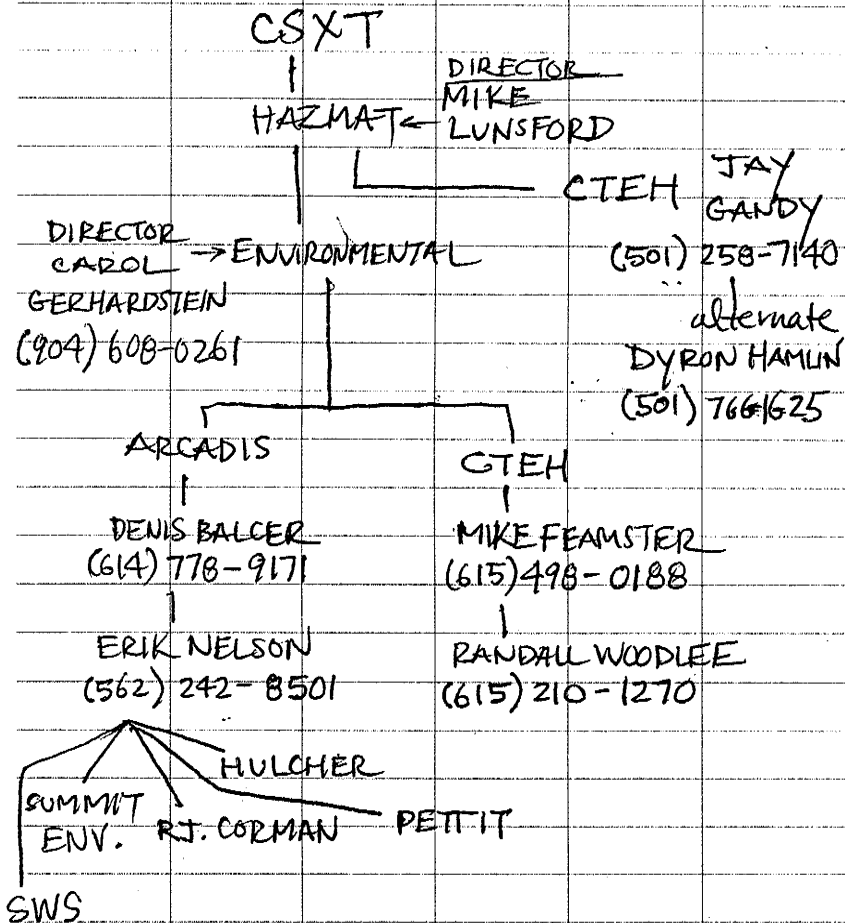 CSXT
DIRECTOR
MIKE
LUNSFORD
HAZMAT
CTEH
JAY
GANDY
(501) 258-7140
alternate
DYRON HAMLIN
(501) 766-1625
DIRECTOR
CAROL
GERHARDSTEIN
(904) 608-0261
ENVIRONMENTAL
ARCADIS
DENIS BALCER
(614) 778-9171
ERIK NELSON
(562) 242-8501
CTEH
MIKE FEAMSTER
(615) 498-0188
RANDALL WOODLEE
(615) 210-1270
HULCHER
SUMMIT
ENV.
R.J. CORMAN
PETTIT
SWS